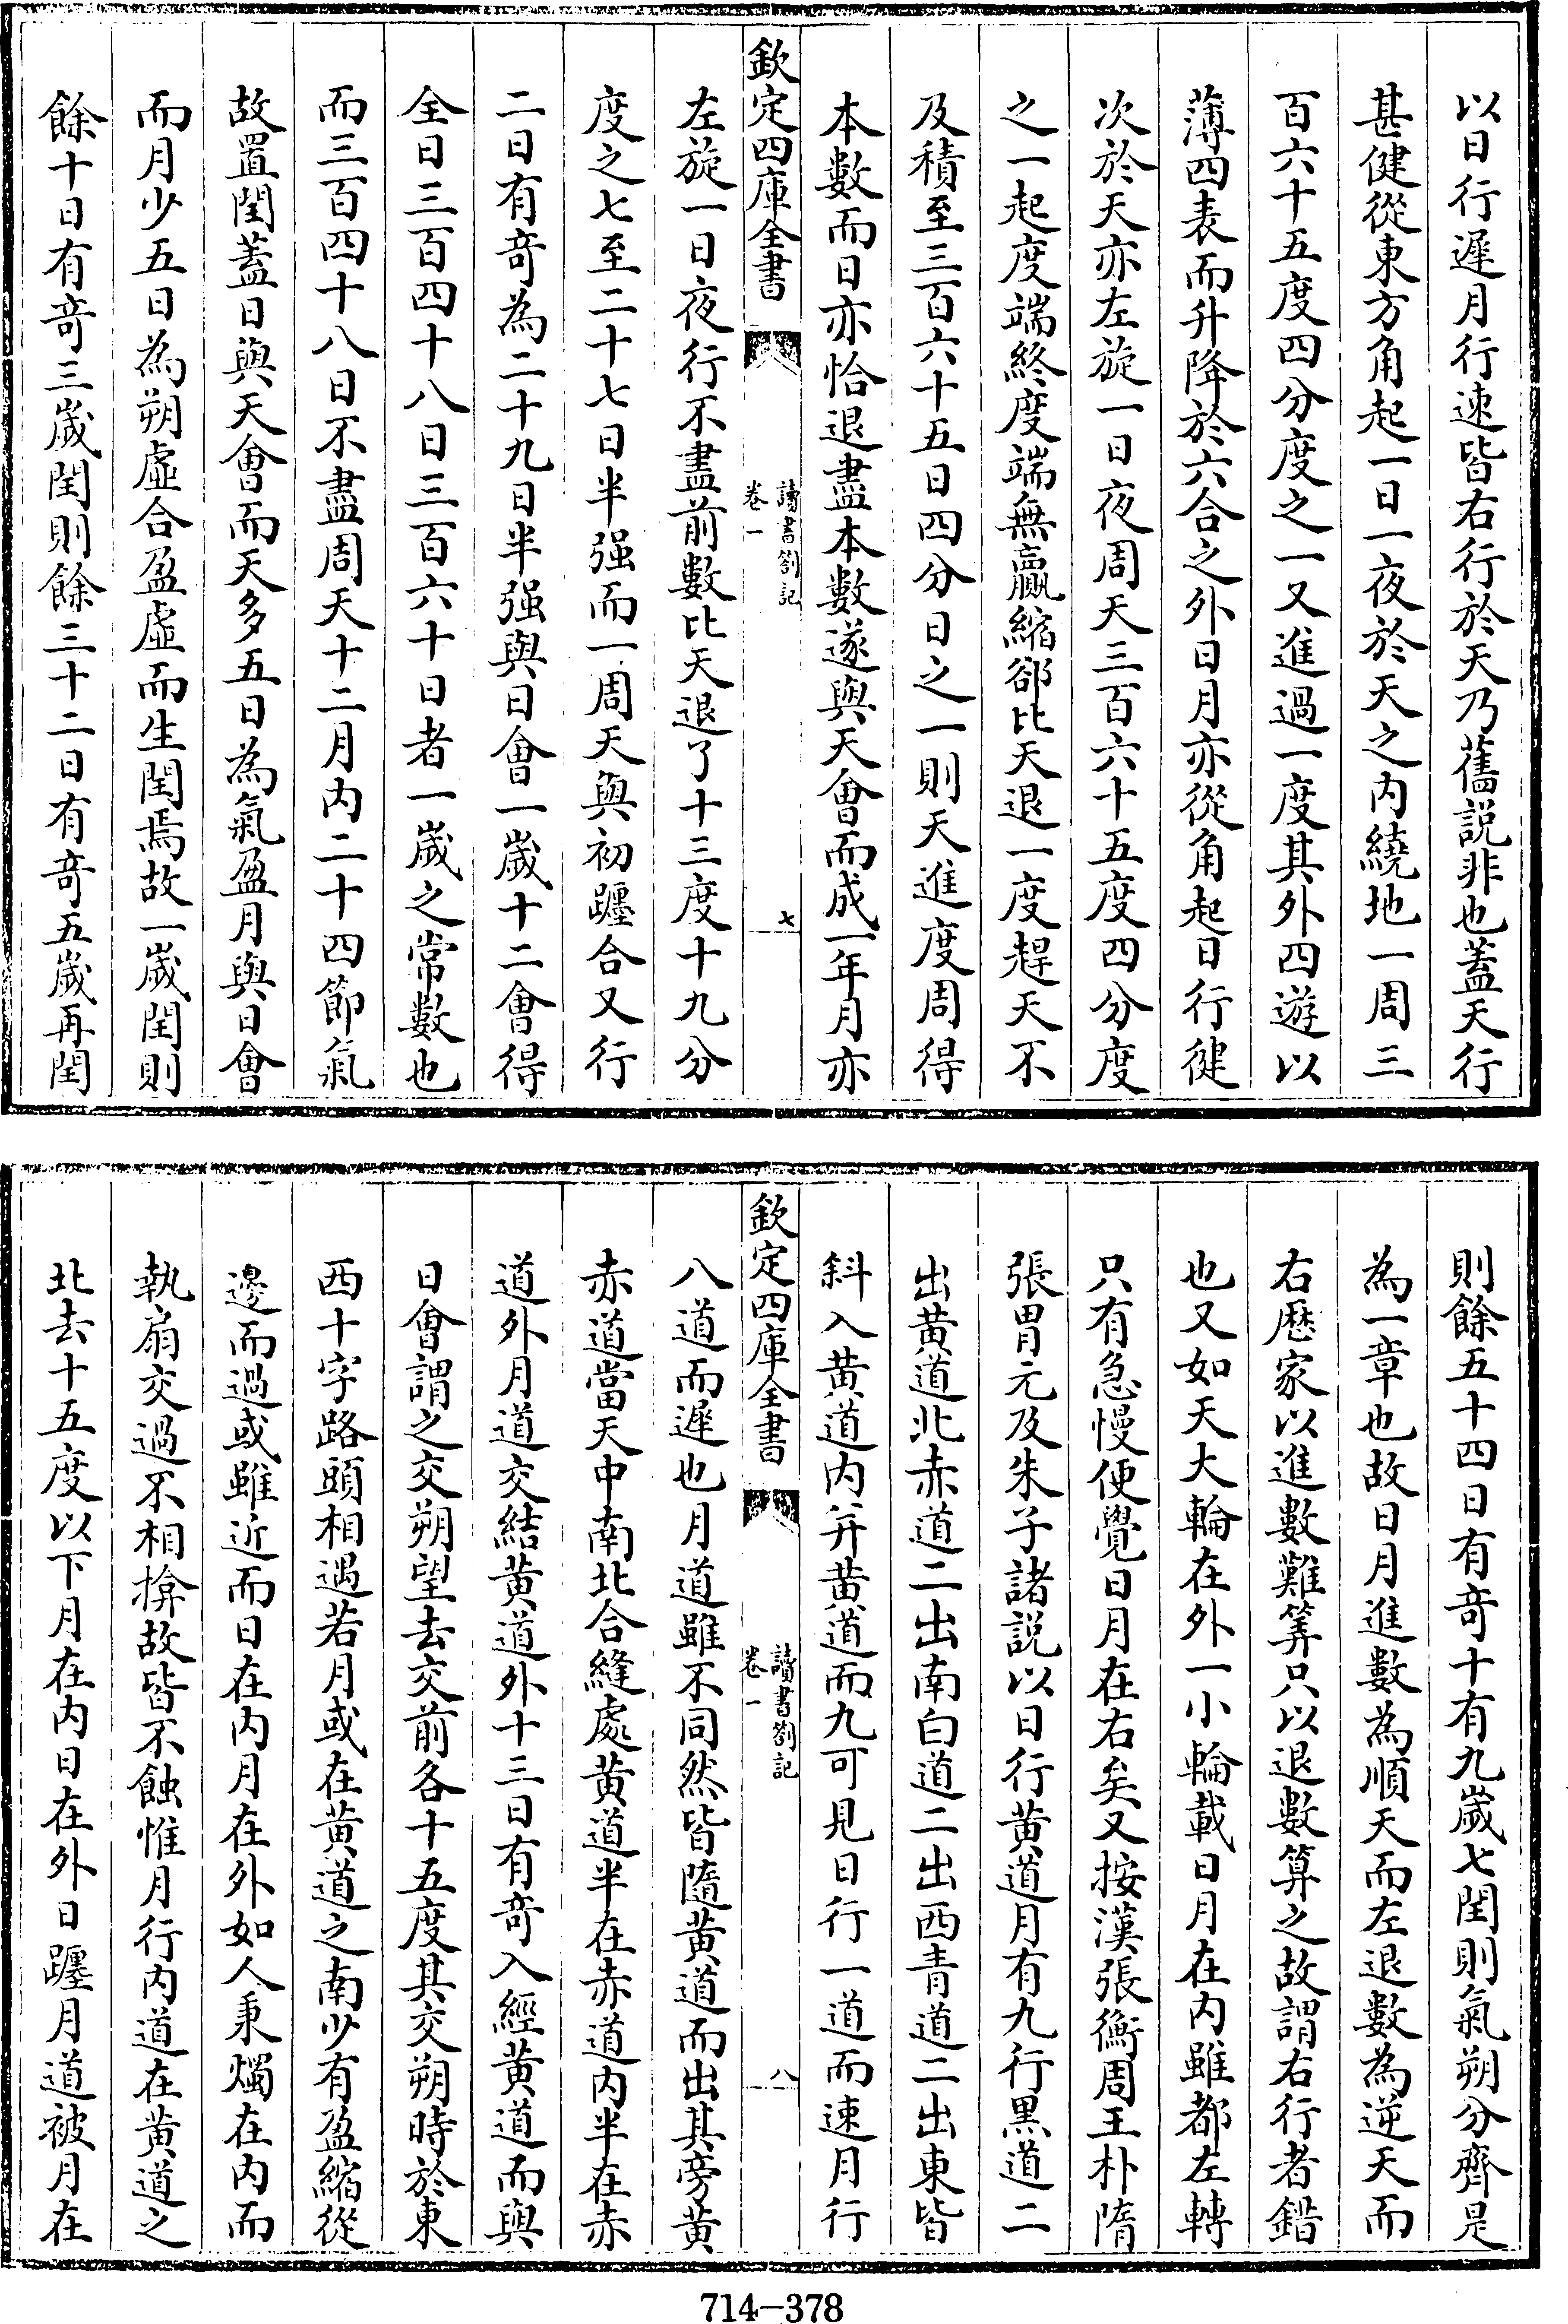 以日行遲月行速皆右行於天乃舊説非也蓋天行
甚健從東方角起一日一夜於天之内繞地一周三
百六十五度四分度之一又進過一度其外四遊以
薄四表而升降於六合之外日月亦從角起日行健
次於天亦左旋一日夜周天三百六十五度四分度
之一起度端終度端無贏縮郤比天退一度趕天不
及積至三百六十五日四分日之一則天進度周得
本數而日亦恰退盡本數遂與天會而成一年月亦
欽定四庫全書
讀書劄記
卷一
七
左旋一日夜行不盡前數比天退了十三度十九分
度之七至二十七日半强而一周天與初躔合又行
二日有竒為二十九日半强與日會一嵗十二會得
全日三百四十八日三百六十日者一嵗之常數也
而三百四十八日不盡周天十二月内二十四節氣
故置閏蓋日與天會而天多五日為氣盈月與日會
而月少五日為朔虛合盈虛而生閏焉故一嵗閏則
餘十日有竒三嵗閏則餘三十二日有竒五嵗再閏
則餘五十四日有竒十有九嵗七閏則氣朔分齊是
為一章也故日月進數為順天而左退數為逆天而
右厯家以進數難筭只以退數算之故謂右行者錯
也又如天大輪在外一小輪載日月在内雖都左轉
只有急慢便覺日月在右矣又按漢張衡周王朴隋
張胄元及朱子諸説以日行黄道月有九行黒道二
出黄道北赤道二出南白道二出西青道二出東皆
斜入黄道内并黄道而九可見日行一道而速月行
欽定四庫全書
讀書劄記
卷一
八
八道而遲也月道雖不同然皆隨黄道而出其旁黄
赤道當天中南北合縫處黄道半在赤道内半在赤
道外月道交結黄道外十三日有竒入經黄道而與
日會謂之交朔望去交前各十五度其交朔時於東
西十字路頭相遇若月或在黄道之南少有盈縮從
邊而過或雖近而日在内月在外如人秉燭在内而
執扇交過不相揜故皆不蝕惟月行内道在黄道之
北去十五度以下月在内日在外日躔月道被月在
714-378